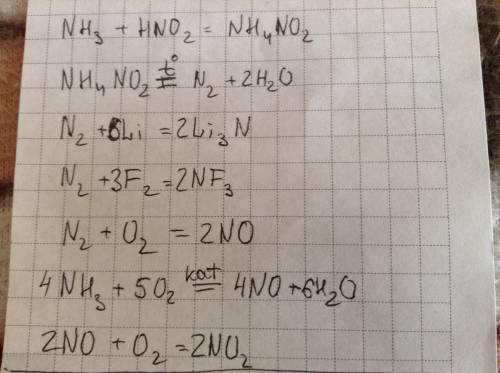 NH₃ + HNO₂ = NH₄NO₂
NH₄NO₂ =(t°) N₂ + 2H₂O
N₂ + 6Li = 2Li₃N
N₂ + 3F₂ = 2NF₃
N₂ + O₂ = 2NO
4NH₃ + 5O₂ =(kat) 4NO + 6H₂O
2NO + O₂ = 2NO₂